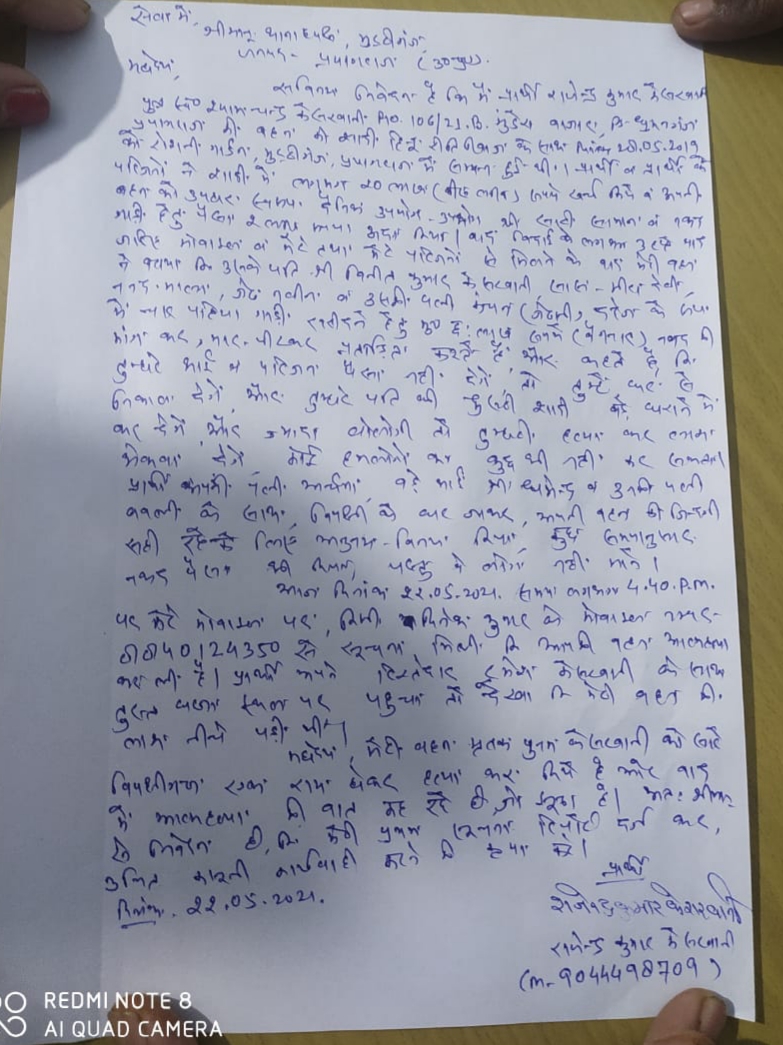 सेवा में,
श्रीमान् थानाध्यक्ष, मुट्ठीगंज,
जनपद- प्रयागराज (उ०प्र०).
महोदय,
सविनय निवेदन है कि मैं प्रार्थी राजेन्द्र कुमार केसरवानी
पुत्र स्व० श्याम चन्द्र केसरवानी R/o. 106/2J.B. बाजार,
प्रयागराज की बहन की शादी हिन्दू रीति रिवाज के साथ दिनांक 28.05.2019
को रोशनी गार्डन, मुट्ठीगंज, प्रयागराज में सम्पन्न हुई थी। प्रार्थी व प्रार्थी के
परिजनों ने शादी में लगभग 20 लाख (बीस लाख) रुपये खर्च किये व अपनी
बहन को उपहार स्वरूप दैनिक उपयोग-उपभोग की सारी सामान व नकद
गाड़ी हेतु पैसा 2 लाख रुपया अदा किया। बाद विदाई के लगभग
जरिए मोबाइल व मेरे तथा मेरे परिजनों से मिलने के बाद मेरी बहन
ने बताया कि उसके पति श्री विनीत कुमार केसरवानी सास- मीरा देवी,
ननद- जेठ नवीन व उसकी पत्नी (जेठानी), दहेज के रूप
में चार पहिया गाड़ी खरीदने हेतु छः लाख रुपये नकद की
मांग कर, मार-पीटकर प्रताड़ित करते हैं, और कहते हैं, कि
तुम्हारे भाई व परिजन पैसा नहीं देंगे, तो तुम्हें घर से
निकाल देंगे, और तुम्हारे पति की दूसरी शादी बड़े घराने में
कर देंगे, और ज्यादा बोलोगी तो तुम्हारी हत्या कर लाश
फेंकवा देंगे, कोई हमलोगों का कुछ भी नहीं कर सकता।
प्रार्थी अपनी पत्नी अर्चना, बड़े भाई श्री धर्मेन्द्र व उनकी पत्नी
के साथ, विपक्षी के घर जाकर, अपनी बहन की जिन्दगी
सही रहने के लिए अनुनय-विनय किया, कुछ समयानुसार
नकद पैसा भी दिया, परन्तु ये लोग नहीं माने।
आज दिनांक 22.05.2021. समय लगभग 4.40.P.M.
पर मेरे मोबाइल पर, किसी कुमार के मोबाइल नम्बर-
8840124350 से सूचना मिली कि आपकी बहन आत्महत्या
कर ली है। प्रार्थी अपने रिश्तेदार केसरवानी के साथ
तुरन्त घटना स्थल पर पहुंचा तो देखा कि मेरी बहन की
लाश नीचे पड़ी थी।
महोदय, मेरी बहन मृतक पूनम केसरवानी को सारे
विपक्षीगण एक राय होकर हत्या कर दिये हैं और बाद
में आत्महत्या की बात कह रहे हैं, जो झूठा है। अतः श्रीमान्
से निवेदन है, कि मेरी प्रथम सूचना रिपोर्ट दर्ज कर,
उचित कानूनी कार्यवाही करने की कृपा करें।
दिनांक. 22.05.2021.
प्रार्थी
राजेन्द्र कुमार केसरवानी
राजेन्द्र कुमार केसरवानी
(m- 9044498709)
REDMI NOTE 8
AI QUAD CAMERA